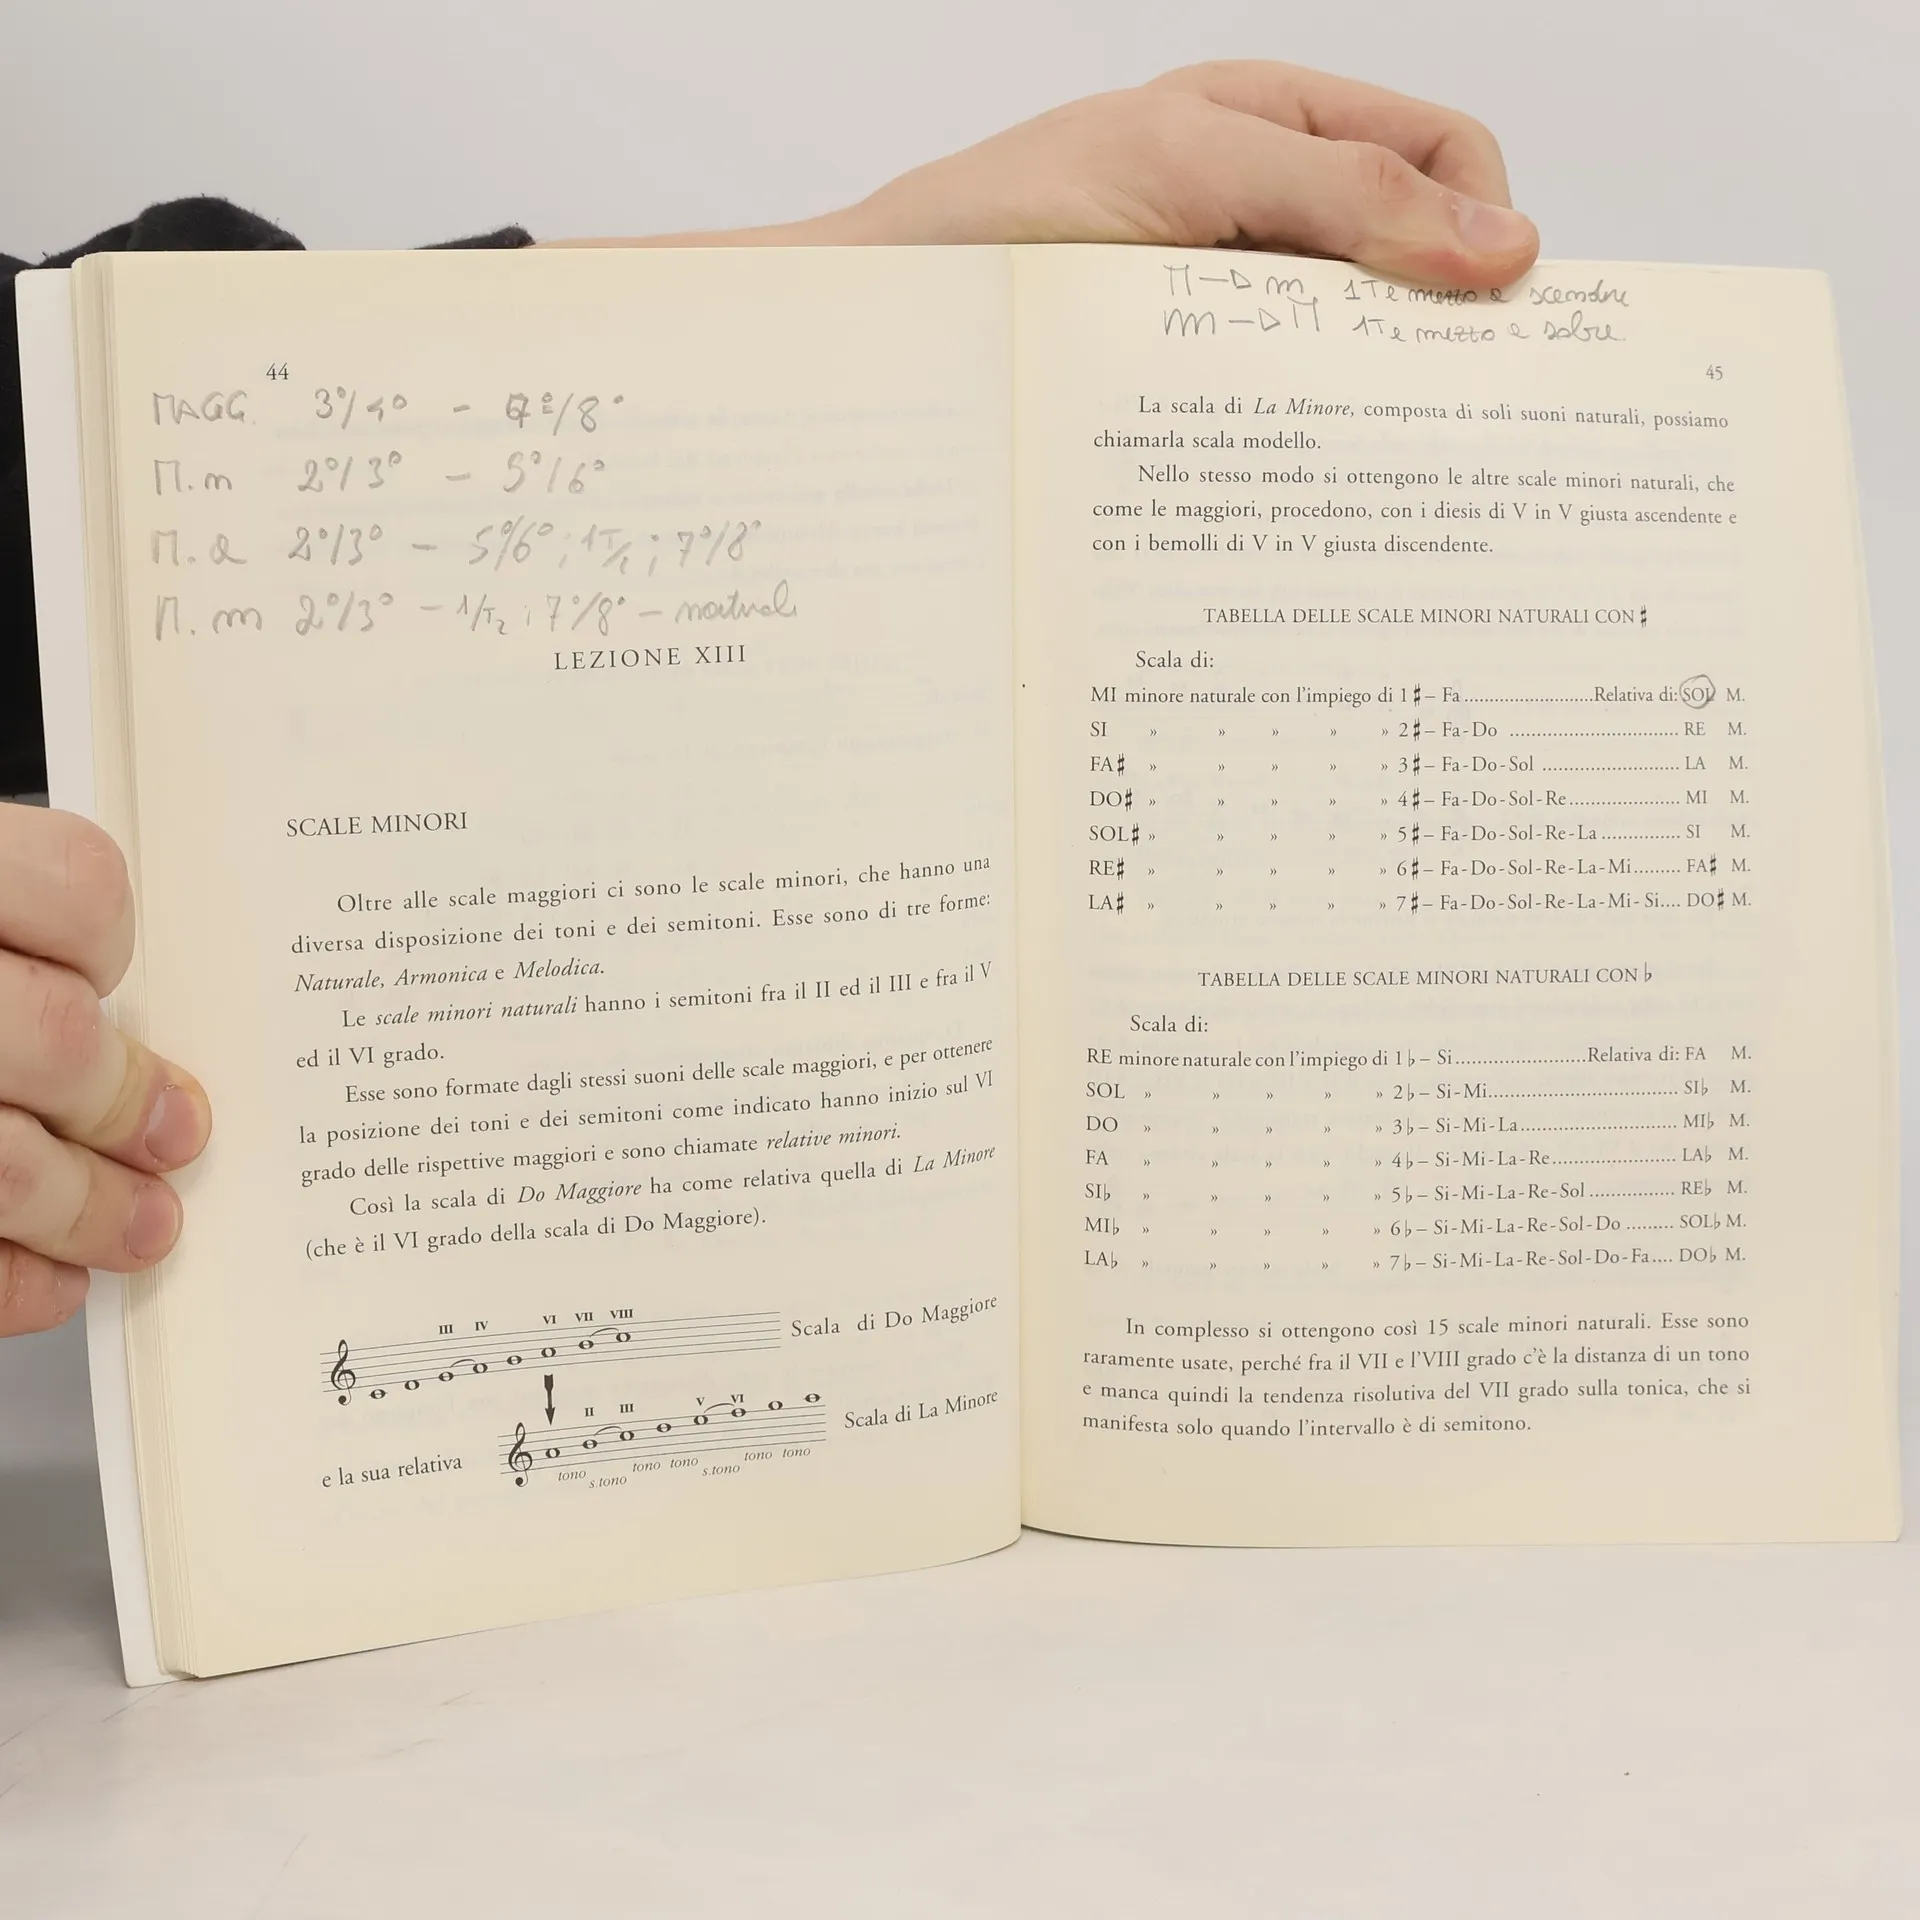 44
MAGG. 3°/4° - 7°/8°
M.n 2°/3° - 5°/6°
M.a 2°/3° - 5°/6° ; 1T/2 ; 7°/8°
M.m 2°/3° - 1/T2 ; 7°/8° - naturale
LEZIONE XIII
SCALE MINORI
Oltre alle scale maggiori ci sono le scale minori, che hanno una
diversa disposizione dei toni e dei semitoni. Esse sono di tre forme:
Naturale, Armonica e Melodica.
Le scale minori naturali hanno i semitoni fra il II ed il III e fra il V
ed il VI grado.
Esse sono formate dagli stessi suoni delle scale maggiori, e per ottenere
la posizione dei toni e dei semitoni come indicato hanno inizio sul VI
grado delle rispettive maggiori e sono chiamate relative minori.
Così la scala di Do Maggiore ha come relativa quella di La Minore
(che è il VI grado della scala di Do Maggiore).
III IV VI VII VIII
Scala di Do Maggiore
II III V VI
Scala di La Minore
e la sua relativa
tono s.tono tono tono s.tono tono tono
M → m 1T e mezzo a scendere
m → M 1T e mezzo a salire
45
La scala di La Minore, composta di soli suoni naturali, possiamo
chiamarla scala modello.
Nello stesso modo si ottengono le altre scale minori naturali, che
come le maggiori, procedono, con i diesis di V in V giusta ascendente e
con i bemolli di V in V giusta discendente.
TABELLA DELLE SCALE MINORI NATURALI CON ♯
Scala di:
MI minore naturale con l'impiego di 1 ♯ – Fa ........................Relativa di: SOL M.
SI » » » » » 2 ♯ – Fa-Do ................................ RE M.
FA♯ » » » » » 3 ♯ – Fa-Do-Sol .......................... LA M.
DO♯ » » » » » 4 ♯ – Fa-Do-Sol-Re..................... MI M.
SOL♯ » » » » » 5 ♯ – Fa-Do-Sol-Re-La ............... SI M.
RE♯ » » » » » 6 ♯ – Fa-Do-Sol-Re-La-Mi......... FA♯ M.
LA♯ » » » » » 7 ♯ – Fa-Do-Sol-Re-La-Mi-Si.... DO♯ M.
TABELLA DELLE SCALE MINORI NATURALI CON ♭
Scala di:
RE minore naturale con l'impiego di 1 ♭ – Si........................Relativa di: FA M.
SOL » » » » » 2 ♭ – Si-Mi.................................... SI♭ M.
DO » » » » » 3 ♭ – Si-Mi-La.............................. MI♭ M.
FA » » » » » 4 ♭ – Si-Mi-La-Re........................ LA♭ M.
SI♭ » » » » » 5 ♭ – Si-Mi-La-Re-Sol ................ RE♭ M.
MI♭ » » » » » 6 ♭ – Si-Mi-La-Re-Sol-Do ......... SOL♭ M.
LA♭ » » » » » 7 ♭ – Si-Mi-La-Re-Sol-Do-Fa.... DO♭ M.
In complesso si ottengono così 15 scale minori naturali. Esse sono
raramente usate, perché fra il VII e l'VIII grado c'è la distanza di un tono
e manca quindi la tendenza risolutiva del VII grado sulla tonica, che si
manifesta solo quando l'intervallo è di semitono.